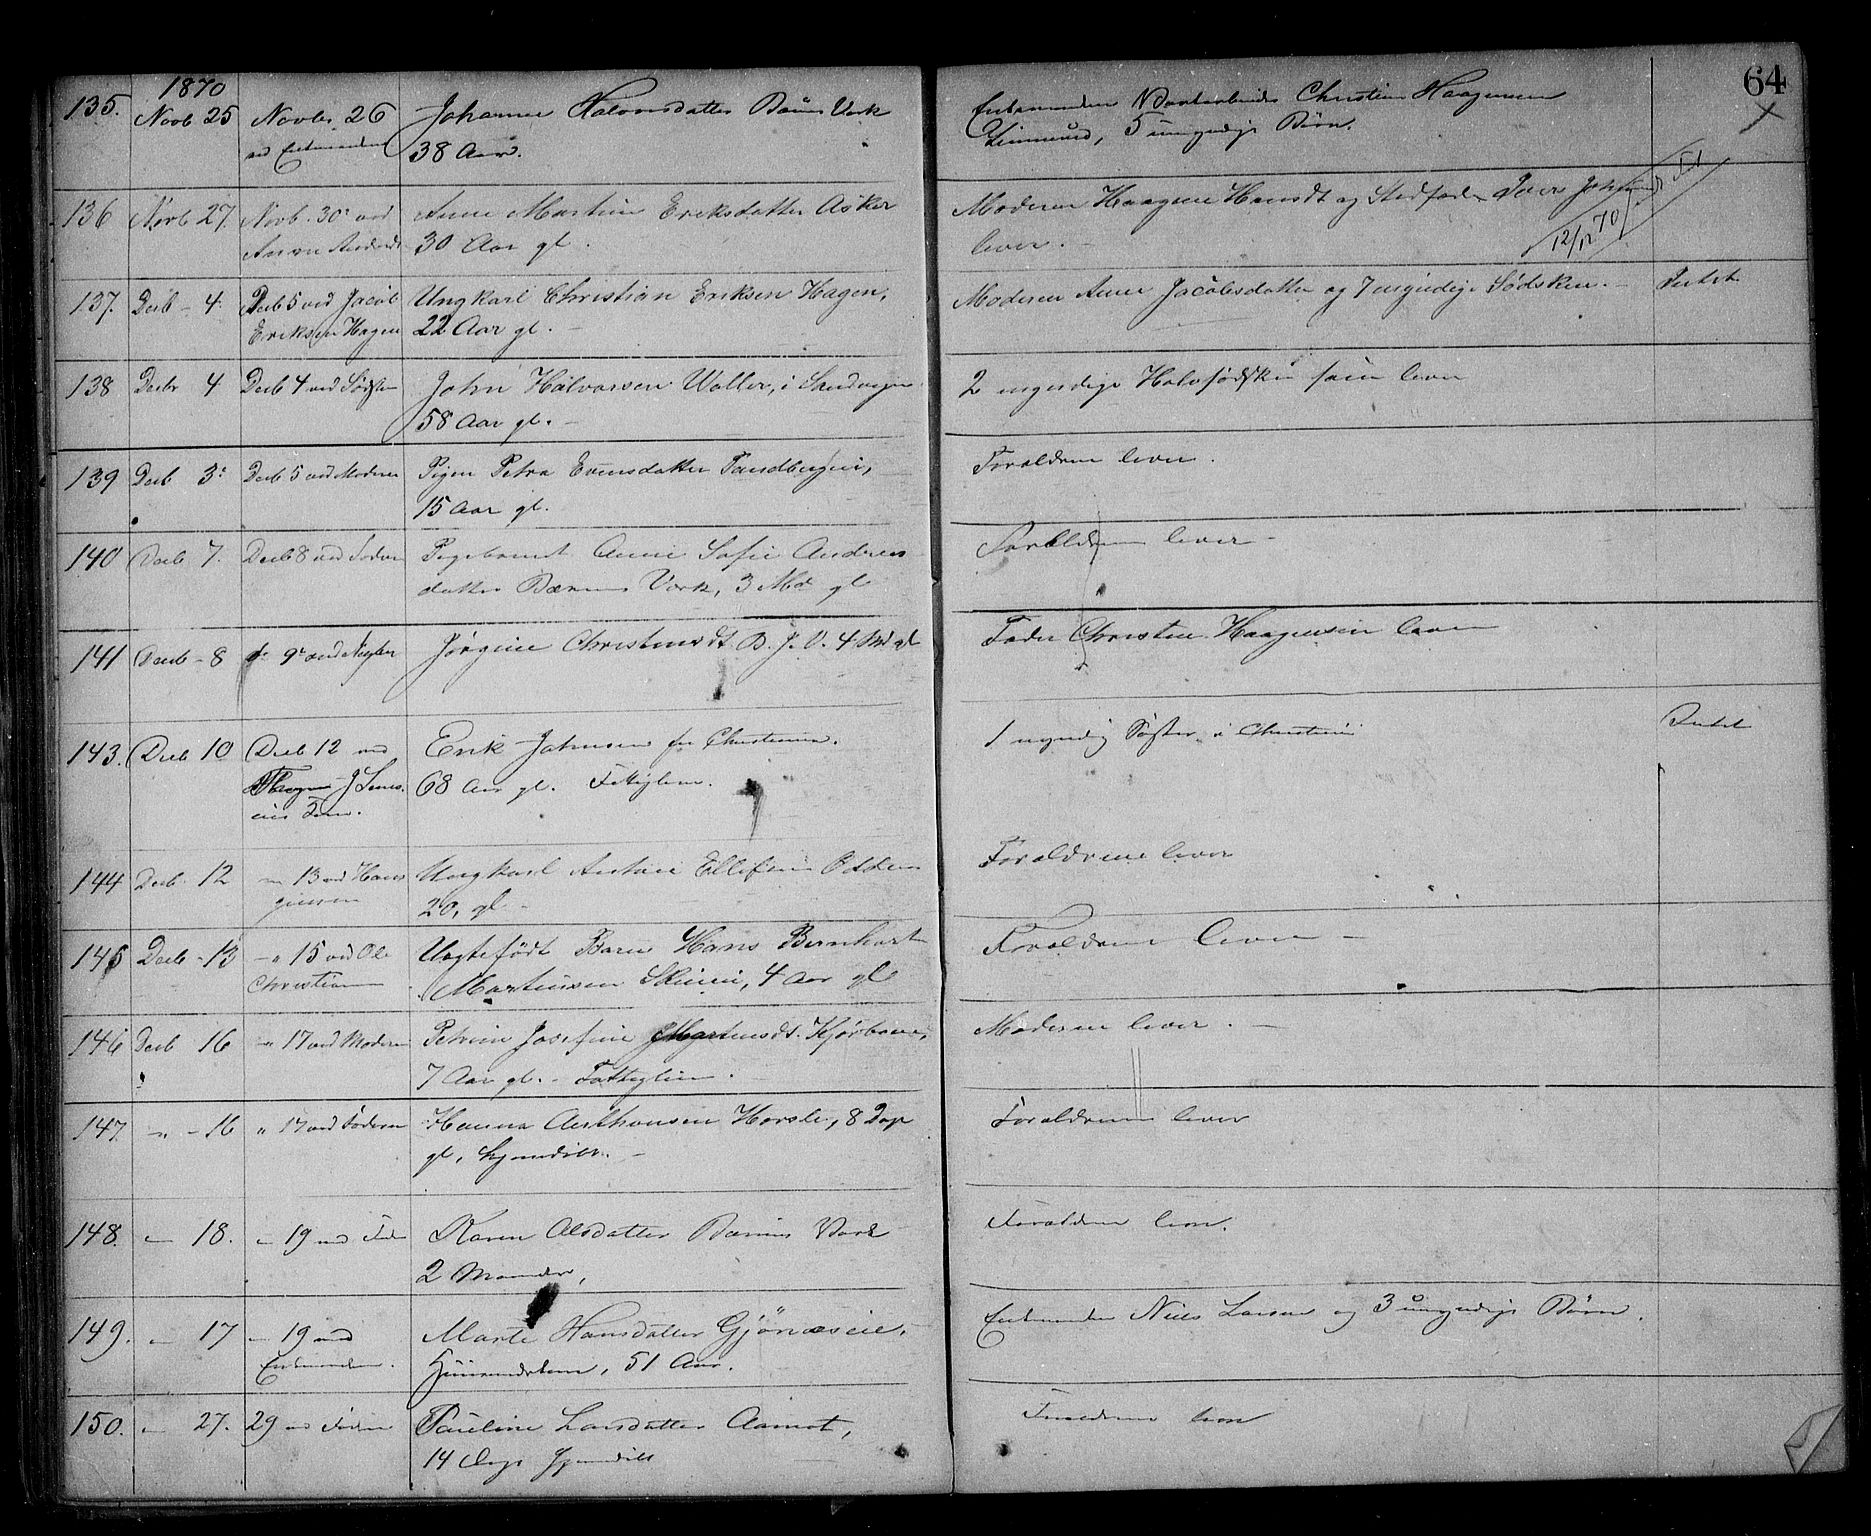 64
1870
135. Novb 25 Novbr 26 Johanne Halvorsdatter Bærums Værk
ved Enkemanden 38 Aar.
Enkemanden Christian Haagensen
5 umyndige Børn.
136 Novb 27. Novb. 30 ved Anne Martine Eriksdatter Asker
30 Aar gl.
Moderen Haagine Hansdt og Stedfader Iver
lever.
12/12 70
137. Decb - 4. Decb 5 ved Jacob Ungkarl Christian Eriksen Hagen,
Eriksen Hagen 22 Aar gl. -
Moderen Anne Jacobsdatter og 7 myndige Sødsken. - Intet
138 Decbr 4 Decb 4 ved John Halvorsen Woller, i Sandvigen
58 Aar gl. -
2 myndige Halvsødsken som lever
139 Decb 3. Decb 5 ved Moderen Pigen Petra Evensdatter Tandbergeie,
15 Aar gl.
Forældrene lever.
140 Decb 7. Decb 8 ved Faderen Pigebarnet Anne Sofie Andreas
datter Bærums Værk, 3 Md gl
Forældrene lever -
141 Decb - 8 d. 9 ved Jørgine Christensdt. B. J. V. 4 Md gl
Fader Christen Haagensen lever
143. Decb 10 Decb 12 ved Erik Johnsen fra Christiania.
68 Aar gl. Fattiglem.
1 myndig Søster i Christiania Intet
144 Decb. 12 - 13 ved Hans Ungkarl Anton Ellefsen Odden
20, gl -
Forældrene lever
145 Decb - 13 - " 15 ved Ole Uægtefødt Barn Hans Bernhart
Christian Martinsen 4 Aar gl
Forældrene lever -
146 Decb 16 - " 17 ved Moderen Petrine Josefine Kjørboeie,
7 Aar gl. - Fattiglem.
Moderen lever. -
147 - " - 16 " 17 ved Faderen Hanna Anthonsen Horsle, 8 Dage
gl, hjemdøbt. -
Forældrene lever
148. - 18. - 19 ved Fader Karen Olsdatter Bærums Værk
2 Maaneder,
Forældrene lever.
149. - 17 - 19 ved Marte Hansdatter Gjønneseie,
Enkemanden. Huusmandskone, 51 Aar.
Enkemanden Niels Larsen og 3 umyndige Børn.
150. - 27. 29 ved Faderen Pauline Larsdatter Aamot,
14 Dage hjemdøbt
Forældrene lever